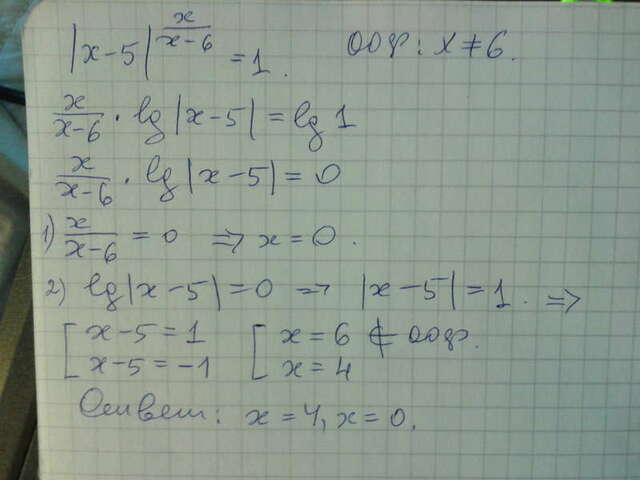 |x-5|^(x/(x-6)) = 1. ООФ: x ≠ 6.
x/(x-6) · lg|x-5| = lg 1
x/(x-6) · lg|x-5| = 0
1) x/(x-6) = 0 ⇒ x = 0.
2) lg|x-5| = 0 ⇒ |x-5| = 1. ⇒
[ x-5 = 1 [ x = 6 ∉ ООФ.
x-5 = -1 x = 4
Ответ: x = 4, x = 0.